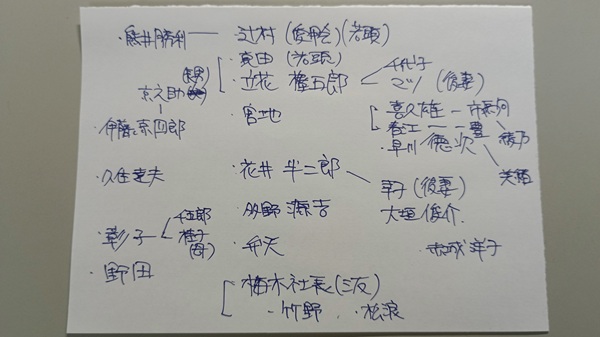 ・熊井勝利 ― 辻村 (愛甲会)(若頭)
・真田 (若頭)
・立花 権五郎
千代子
マツ (後妻)
京之助
喜久雄 ― 市駒
・宮地
春江 ― 一豊
綾乃
・伊藤京四郎
・早川 徳次
・花井 半二郎
幸子 (後妻)
・多野 源吉
大垣 俊介
・彰子
千五郎
・弁天
洋子
・野田
梅木社長 (三友)
・竹野 ・松浪